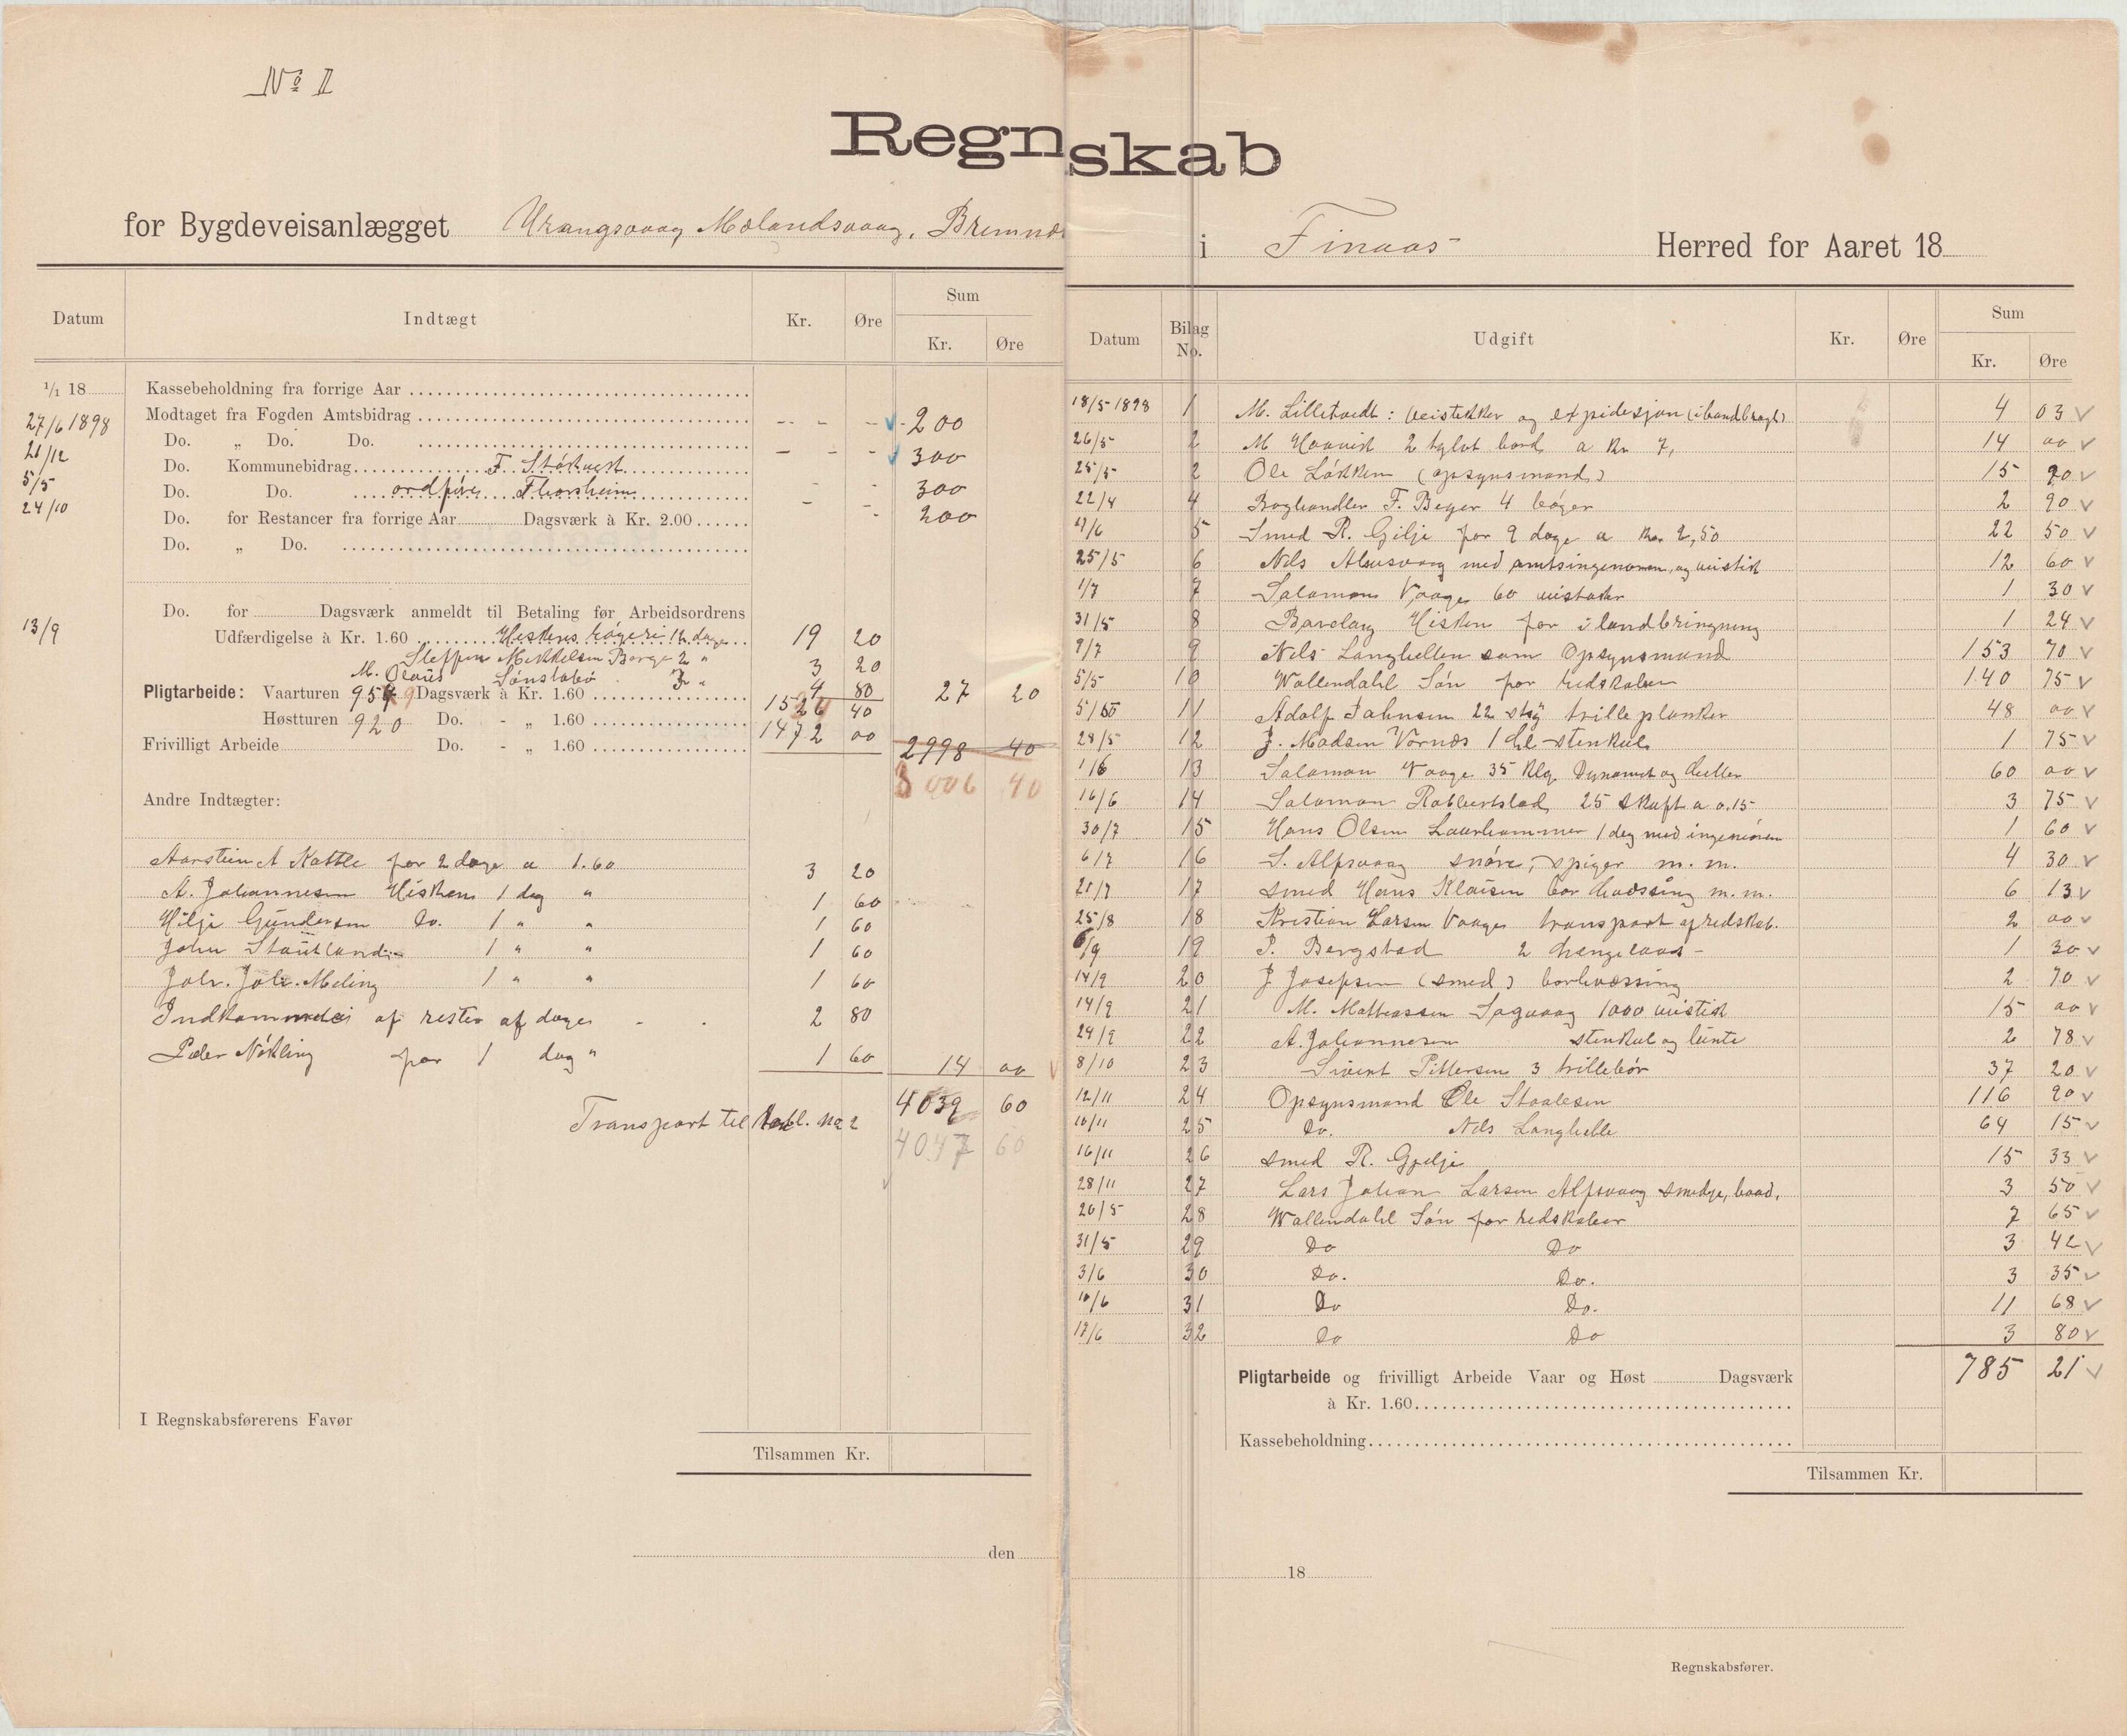 No I
Regnskab
for Bygdeveisanlægget Urangsvaag Mælandsvaag, Bremnæs i Finaas Herred for Aaret 18
Datum Indtægt Kr. Øre Sum Kr. Øre
1/1 18 Kassebeholdning fra forrige Aar
27/6 1898 Modtaget fra Fogden Amtsbidrag - - - 200
21/12 Do. „ Do. Do. - - - 300
5/5 Do. Kommunebidrag F. Stokvest - - 300
24/10 Do. Do. ordfører Thorsheim - - 200
Do. for Restancer fra forrige Aar Dagsværk à Kr. 2.00
Do. „ Do.
Do. for Dagsværk anmeldt til Betaling før Arbeidsordrens
13/9 Udfærdigelse à Kr. 1.60 Hiskens bøgeri 12 dage 19 20
Steffen Mikkelsen Berge 2 " 3 20
M. Olaus Sønstabø 3 " 4 80 27 20
Pligtarbeide: Vaarturen 954 9 Dagsværk à Kr. 1.60 1526 40
Høstturen 920 Do. - „ 1.60 1472 00
Frivilligt Arbeide Do. - „ 1.60 2998 40
3006 40
Andre Indtægter:
Aarstein A Kattle for 2 dage a 1.60 3 20
A. Johannesen Hisken 1 dag " 1 60
Hilje Gundersen Do. 1 " " 1 60
John Stautland 1 " " 1 60
Joh. Joh. Meling 1 " " 1 60
Indkommedei af rester af dage - . 2 80
Peder Nøkling for 1 dag " 1 60 14 00
4039 60
Transport til Tabl. No 2
4047 60
I Regnskabsførerens Favør
Tilsammen Kr.
den
Datum Bilag No. Udgift Kr. Øre Sum Kr. Øre
18/5 1898 1 M. Lilletvedt: veistikker og expidesjon (ilandbragt) 4 03
26/5 2 M Haavik 2 tylvt bord a Kr 7, 14 00
25/5 2 Ole Løkken (opsynsmand) 15 20
22/4 4 Boghandler F. Beyer 4 bøger 2 90
4/6 5 Smed R. Gilje for 9 dage a Kr. 2,50 22 50
25/5 6 Nils Alausvaag med amtsingenøren, og veistik 12 60
1/7 7 Salamon Vaage 60 veistaker 1 30
31/5 8 Barclay Hisken for ilandbringning 1 24
9/7 9 Nils Langhellen som Opsynsmand 153 70
5/5 10 Wallendahl Søn for redskaber 140 75
5/5 11 Adolf Johnsen 22 stÿ trilleplanker 48 00
28/5 12 J. Madsen Vornæs 1 hl stenkul 1 75
1/6 13 Salamon Vaage 35 Klg. Dynamit og hetter 60 00
16/6 14 Salamon Robbertstad 25 skaft a 0.15 3 75
30/7 15 Hans Olsen Laurhammer 1 dag med ingeniøren 1 60
6/7 16 S. Alfsvaag snøre, spiger m. m. 4 30
21/7 17 smed Hans Klausen bor hvæssing m. m. 6 13
25/8 18 Kristian Larsen Vaage transport af redskab. 2 00
6/9 19 P. Bergstad 2 hængelaas 1 30
14/9 20 J Josefsen (smed) borhvæssing 2 70
14/9 21 M. Mathiassen Sagvaag 1000 veistik 15 00
24/9 22 A. Johannesen stenkul og lunte 2 78
8/10 23 Sivert Pittersen 3 trillebør 37 20
12/11 24 Opsynsmand Ole Staalesen 116 90
10/11 25 Do. Nils Langhelle 64 15
16/11 26 smed R. Gjelje 15 33
28/11 27 Lars Johan Larsen Alfsvaag smedje, baad, 3 50
20/5 28 Wallendahl Søn for redskaber 7 65
31/5 29 Do Do 3 42
3/6 30 Do. Do. 3 35
10/6 31 Do Do. 11 68
17/6 32 Do Do 3 80
785 21
Pligtarbeide og frivilligt Arbeide Vaar og Høst Dagsværk
à Kr. 1.60
Kassebeholdning
Tilsammen Kr.
18
Regnskabsfører.